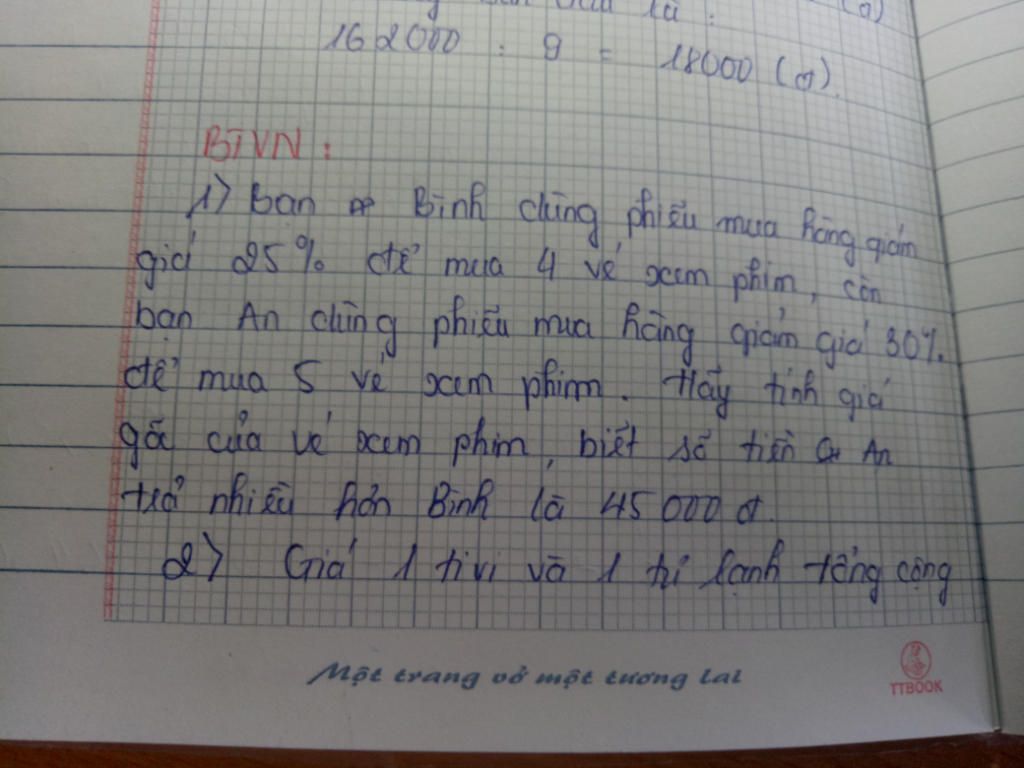 là :
(đ)
162000 : 9 = 18000 (đ).
BTVN :
1) Bạn Bình dùng phiếu mua hàng giảm
giá 25% để mua 4 vé xem phim, còn
bạn An dùng phiếu mua hàng giảm giá 30%.
để mua 5 vé xem phim. Hãy tính giá
gốc của vé xem phim, biết số tiền An
trả nhiều hơn Bình là 45000 đ.
2) Giá 1 ti vi và 1 tủ lạnh tổng cộng
Một trang vở một tương lai
TTBOOK